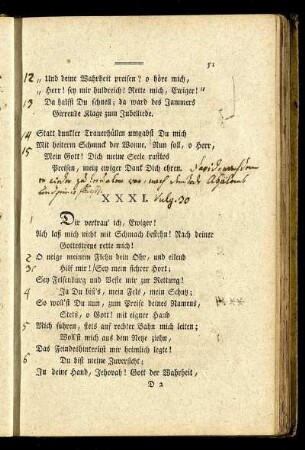 51
12 „Und deine Wahrheit preisen? o höre mich,
„Herr! sey mir huldreich! Rette mich, Ewiger!“
13 Da halfst Du schnell; da ward des Jammers
Girrende Klage zum Jubelliede.
14 Statt dunkler Trauerhüllen umgabst Du mich
Mit heiterm Schmuck der Wonne. Nun soll, o Herr,
15 Mein Gott! Dich meine Seele rastlos
Preisen, mein ewiger Dank Dich ehren.
XXXI. Vulg. 30
1 Dir vertrau' ich, Ewiger!
Ach laß mich nicht mit Schmach bestehn! Nach deiner
Gottestreue rette mich!
2 O neige meinem Flehn dein Ohr, und eilend
3 Hilf mir! Sey mein sichrer Hort;
Sey Felsenburg und Veste mir zur Rettung!
4 Ja Du bist's, mein Fels, mein Schutz;
So woll'st Du nun, zum Preise deines Namens,
Stets, o Gott! mit eigner Hand
5 Mich führen, stets auf rechter Bahn mich leiten;
Woll'st mich aus dem Netze ziehn,
Das Feindeshinterlist mir heimlich legte!
6 Du bist meine Zuversicht;
In deine Hand, Jehovah! Gott der Wahrheit,
D 2